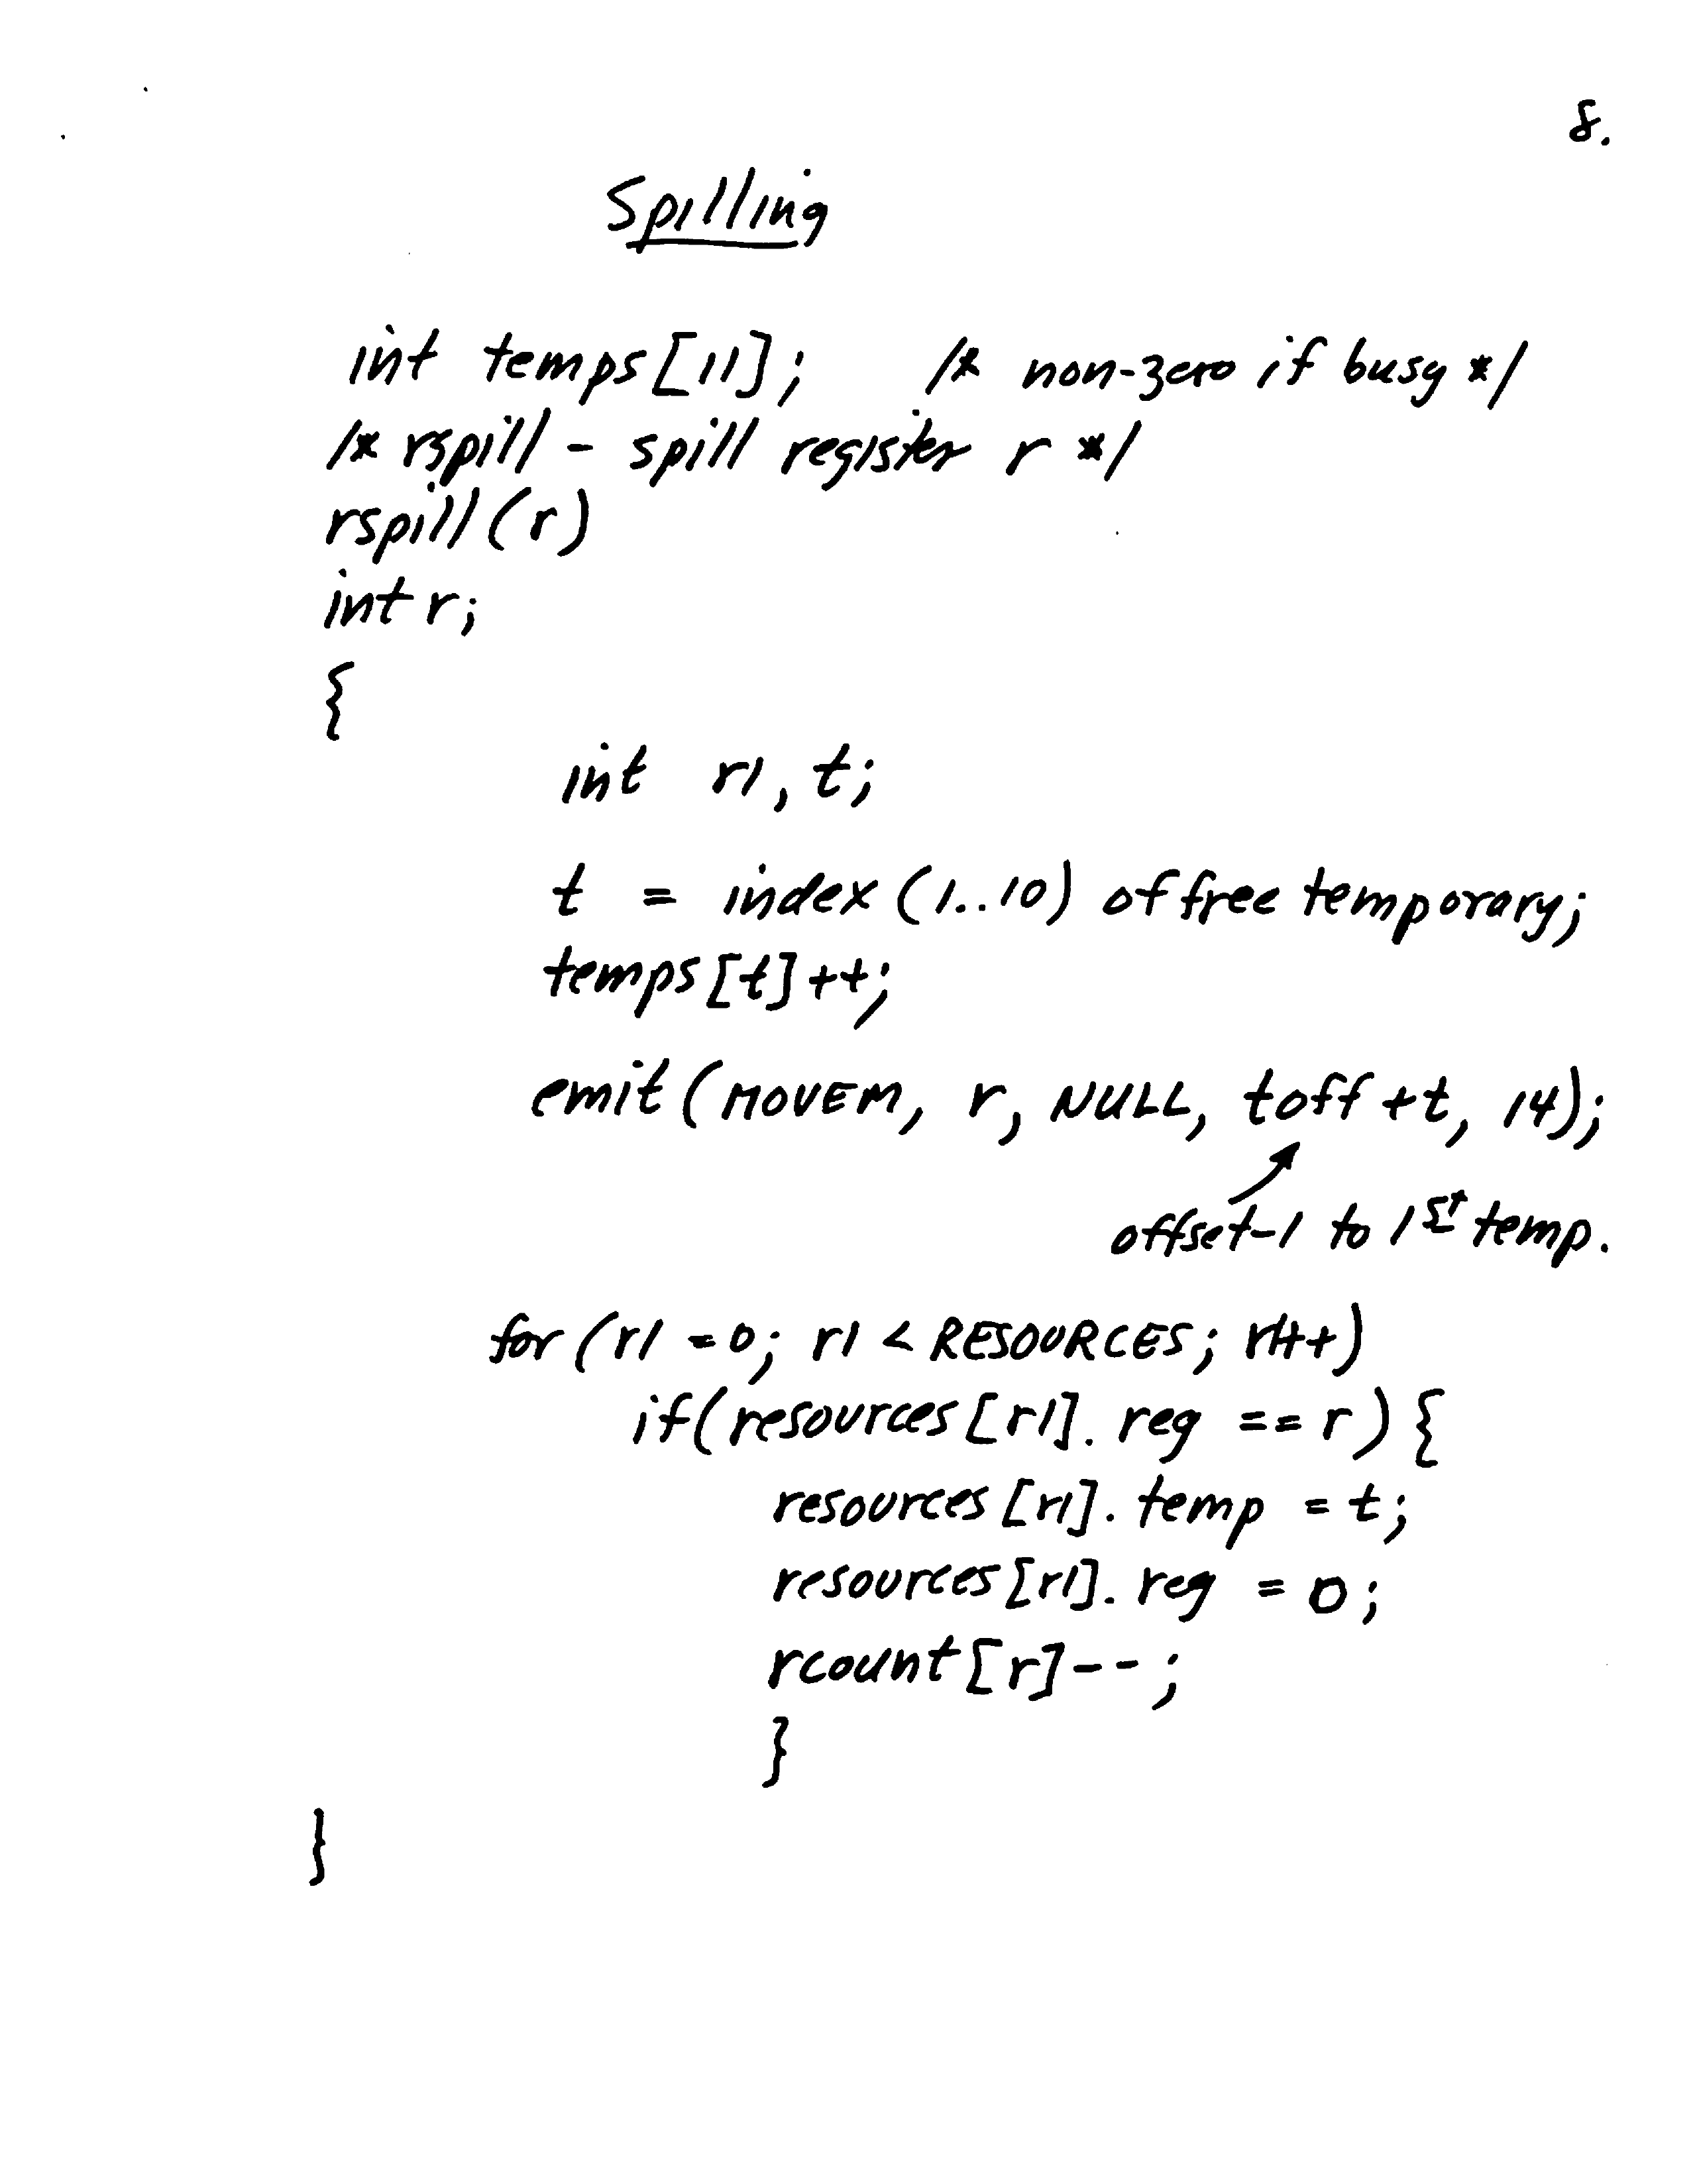 8.
Spilling
int temps[11]; /* non-zero if busy */
/* rspill - spill register r */
rspill(r)
int r;
{
int r1, t;
t = index (1..10) of free temporary;
temps[t]++;
emit(MOVEM, r, NULL, toff+t, 14);
offset-1 to 1st temp.
for (r1 = 0; r1 < RESOURCES; r1++)
if(resources[r1].reg == r) {
resources[r1].temp = t;
resources[r1].reg = 0;
rcount[r]--;
}
}